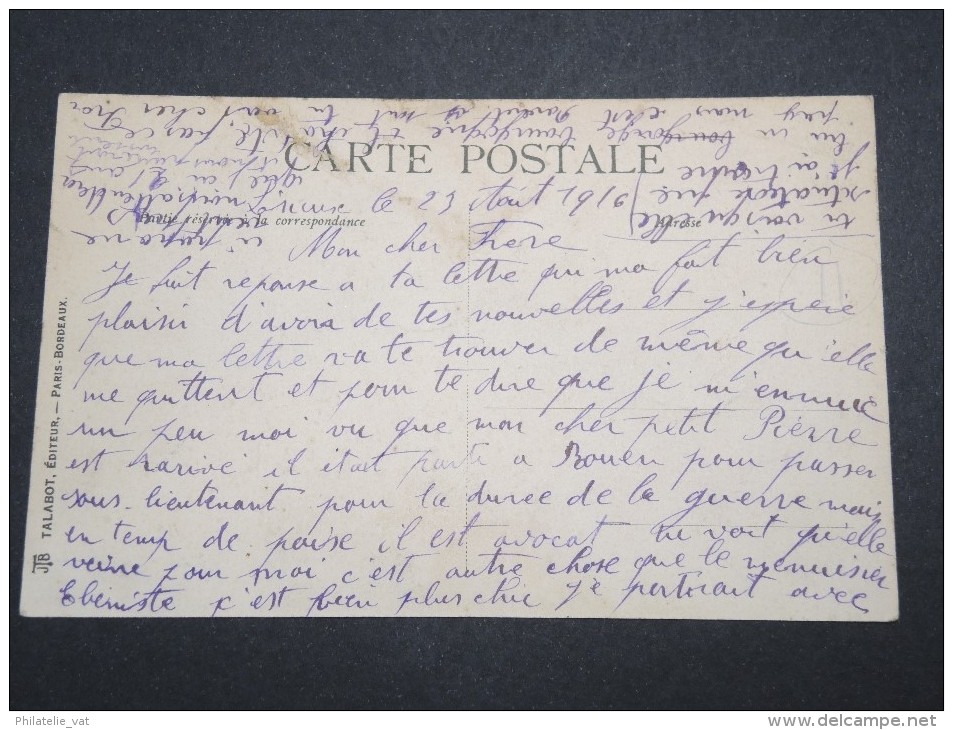 CARTE POSTALE
le 23 Août 1916
Partie réservée à la correspondance
Adresse
Mon cher frere
Je fait reponse a ta lettre qui ma fait bien
plaisir d'avoir de tes nouvelles et j'espere
que ma lettre va te trouver de même qu'elle
me quittent et pour te dire que je m'ennuie
un peu moi vu que mon cher petit Piérre
est rarivé il était parti a Rouen pour passer
sous-lieutenant pour la duree de la guerre mais
en temp de paise il est avocat tu voit qu'elle
veine pour moi c'est autre chose que le menuisier
Ebeniste c'est bien plus chic je partirait avec
tu vois quelle
situation que
j'ai trouvée
pay mais c'est
tu vas cher
TALABOT, ÉDITEUR, — PARIS-BORDEAUX.
Philatelie_vat
www.delcampe.net